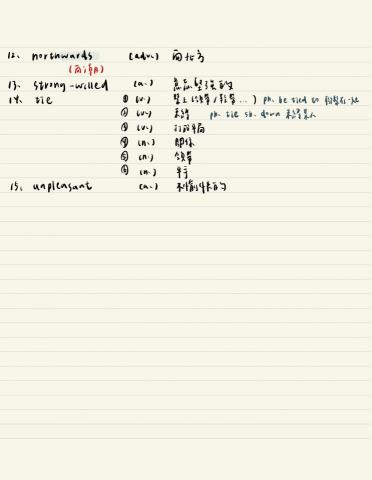 12. northwards (adv.) 向北方
13. strong-willed (a.) 意志堅強的
14. tie ① (v.) 繫上(領帶/鞋帶...) ph. be tied to
② (v.) 束縛 ph. tie sb. down 束縛某人
③ (v.) 打成平局
④ (n.) 關係
⑤ (n.) 領帶
⑥ (n.) 平手
15. unpleasant (a.) 不愉快的